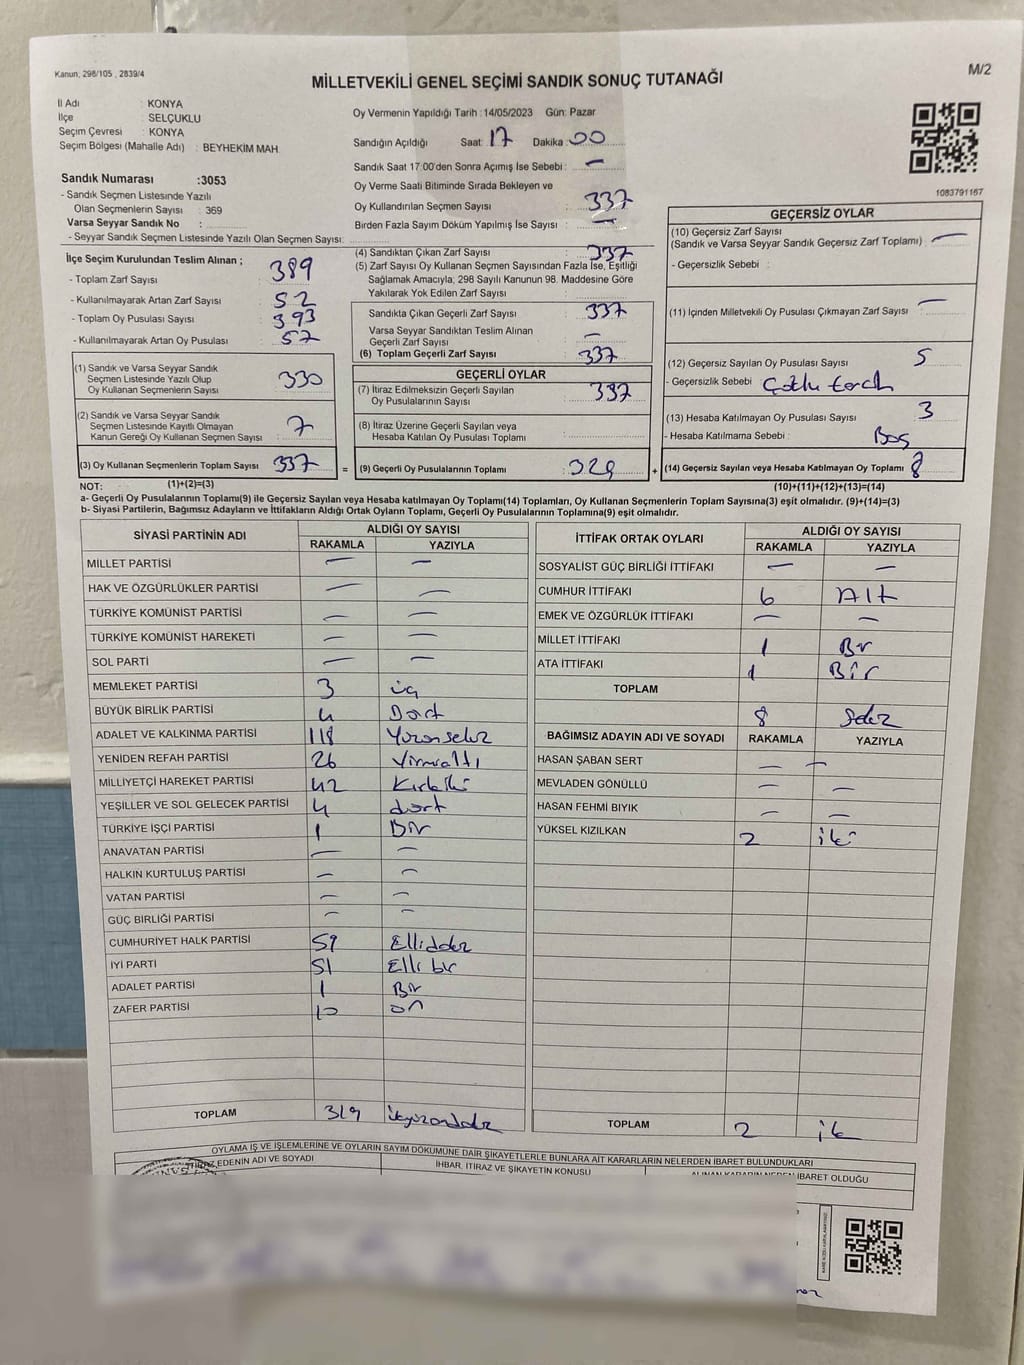 Kanun, 298/105 , 2839/4
M/2
MİLLETVEKİLİ GENEL SEÇİMİ SANDIK SONUÇ TUTANAĞI
İl Adı : KONYA
İlçe : SELÇUKLU
Seçim Çevresi : KONYA
Seçim Bölgesi (Mahalle Adı) : BEYHEKİM MAH.
Sandık Numarası :3053
- Sandık Seçmen Listesinde Yazılı
Olan Seçmenlerin Sayısı : 369
Varsa Seyyar Sandık No :
- Seyyar Sandık Seçmen Listesinde Yazılı Olan Seçmen Sayısı:
Oy Vermenin Yapıldığı Tarih :14/05/2023 Gün: Pazar
Sandığın Açıldığı Saat: 17 Dakika: 00
Sandık Saat 17:00'den Sonra Açımış İse Sebebi: —
Oy Verme Saati Bitiminde Sırada Bekleyen ve
Oy Kullandırılan Seçmen Sayısı : 337
Birden Fazla Sayım Döküm Yapılmış İse Sayısı : —
1083791167
İlçe Seçim Kurulundan Teslim Alınan ;
- Toplam Zarf Sayısı : 389
- Kullanılmayarak Artan Zarf Sayısı : 52
- Toplam Oy Pusulası Sayısı : 393
- Kullanılmayarak Artan Oy Pusulası : 57
(1) Sandık ve Varsa Seyyar Sandık
Seçmen Listesinde Yazılı Olup
Oy Kullanan Seçmenlerin Sayısı : 330
(2) Sandık ve Varsa Seyyar Sandık
Seçmen Listesinde Kayıtlı Olmayan
Kanun Gereği Oy Kullanan Seçmen Sayısı : 7
(3) Oy Kullanan Seçmenlerin Toplam Sayısı : 337 =
(4) Sandıktan Çıkan Zarf Sayısı : 337
(5) Zarf Sayısı Oy Kullanan Seçmen Sayısından Fazla İse, Eşitliği
Sağlamak Amacıyla, 298 Sayılı Kanunun 98. Maddesine Göre
Yakılarak Yok Edilen Zarf Sayısı :
Sandıkta Çıkan Geçerli Zarf Sayısı : 337
Varsa Seyyar Sandıktan Teslim Alınan
Geçerli Zarf Sayısı : —
(6) Toplam Geçerli Zarf Sayısı : 337
GEÇERLİ OYLAR
(7) İtiraz Edilmeksizin Geçerli Sayılan
Oy Pusulalarının Sayısı : 337
(8) İtiraz Üzerine Geçerli Sayılan veya
Hesaba Katılan Oy Pusulası Toplamı :
(9) Geçerli Oy Pusulalarının Toplamı : 329 +
GEÇERSİZ OYLAR
(10) Geçersiz Zarf Sayısı : —
(Sandık ve Varsa Seyyar Sandık Geçersiz Zarf Toplamı)
- Geçersizlik Sebebi :
(11) İçinden Milletvekili Oy Pusulası Çıkmayan Zarf Sayısı : —
(12) Geçersiz Sayılan Oy Pusulası Sayısı : 5
- Geçersizlik Sebebi : Çoklu tercih
(13) Hesaba Katılmayan Oy Pusulası Sayısı : 3
- Hesaba Katılmama Sebebi : Boş
(14) Geçersiz Sayılan veya Hesaba Katılmayan Oy Toplamı : 8
NOT: (1)+(2)=(3) (10)+(11)+(12)+(13)=(14)
a- Geçerli Oy Pusulalarının Toplamı(9) ile Geçersiz Sayılan veya Hesaba katılmayan Oy Toplamı(14) Toplamları, Oy Kullanan Seçmenlerin Toplam Sayısına(3) eşit olmalıdır. (9)+(14)=(3)
b- Siyasi Partilerin, Bağımsız Adayların ve İttifakların Aldığı Ortak Oyların Toplamı, Geçerli Oy Pusulalarının Toplamına(9) eşit olmalıdır.
SİYASİ PARTİNİN ADI ALDIĞI OY SAYISI
RAKAMLA YAZIYLA
MİLLET PARTİSİ — —
HAK VE ÖZGÜRLÜKLER PARTİSİ — —
TÜRKİYE KOMÜNİST PARTİSİ — —
TÜRKİYE KOMÜNİST HAREKETİ — —
SOL PARTİ — —
MEMLEKET PARTİSİ 3 üç
BÜYÜK BİRLİK PARTİSİ 4 Dört
ADALET VE KALKINMA PARTİSİ 118 Yüzonsekiz
YENİDEN REFAH PARTİSİ 26 Yirmialtı
MİLLİYETÇİ HAREKET PARTİSİ 42 Kırkiki
YEŞİLLER VE SOL GELECEK PARTİSİ 4 dört
TÜRKİYE İŞÇİ PARTİSİ 1 Bir
ANAVATAN PARTİSİ — —
HALKIN KURTULUŞ PARTİSİ — —
VATAN PARTİSİ — —
GÜÇ BİRLİĞİ PARTİSİ — —
CUMHURİYET HALK PARTİSİ 59 Ellidokuz
İYİ PARTİ 51 Elli bir
ADALET PARTİSİ 1 Bir
ZAFER PARTİSİ 10 on
TOPLAM 319 üçyüzondokuz
İTTİFAK ORTAK OYLARI ALDIĞI OY SAYISI
RAKAMLA YAZIYLA
SOSYALİST GÜÇ BİRLİĞİ İTTİFAKI — —
CUMHUR İTTİFAKI 6 Altı
EMEK VE ÖZGÜRLÜK İTTİFAKI — —
MİLLET İTTİFAKI 1 Bir
ATA İTTİFAKI 1 Bir
TOPLAM
8 Sekiz
BAĞIMSIZ ADAYIN ADI VE SOYADI RAKAMLA YAZIYLA
HASAN ŞABAN SERT — —
MEVLADEN GÖNÜLLÜ — —
HASAN FEHMİ BIYIK — —
YÜKSEL KIZILKAN 2 iki
TOPLAM 2 iki
OYLAMA İŞ VE İŞLEMLERİNE VE OYLARIN SAYIM DÖKÜMÜNE DAİR ŞİKAYETLERLE BUNLARA AİT KARARLARIN NELERDEN İBARET BULUNDUKLARI
EDENİN ADI VE SOYADI İHBAR, İTİRAZ VE ŞİKAYETİN KONUSU ALINAN KARARIN NEDEN İBARET OLDUĞU